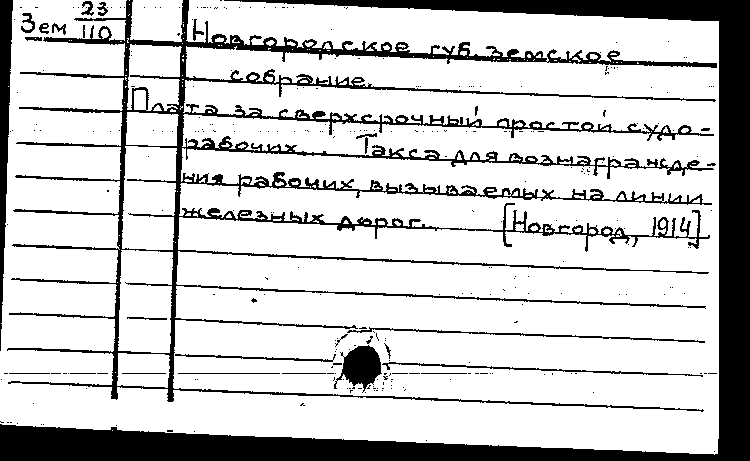 Зем 23/110
Новгородское губ. земское
собрание.
Плата за сверхсрочный простой судо-
рабочих... Такса для вознагражде-
ния рабочих, вызываемых на линии
железных дорог... [Новгород, 1914]